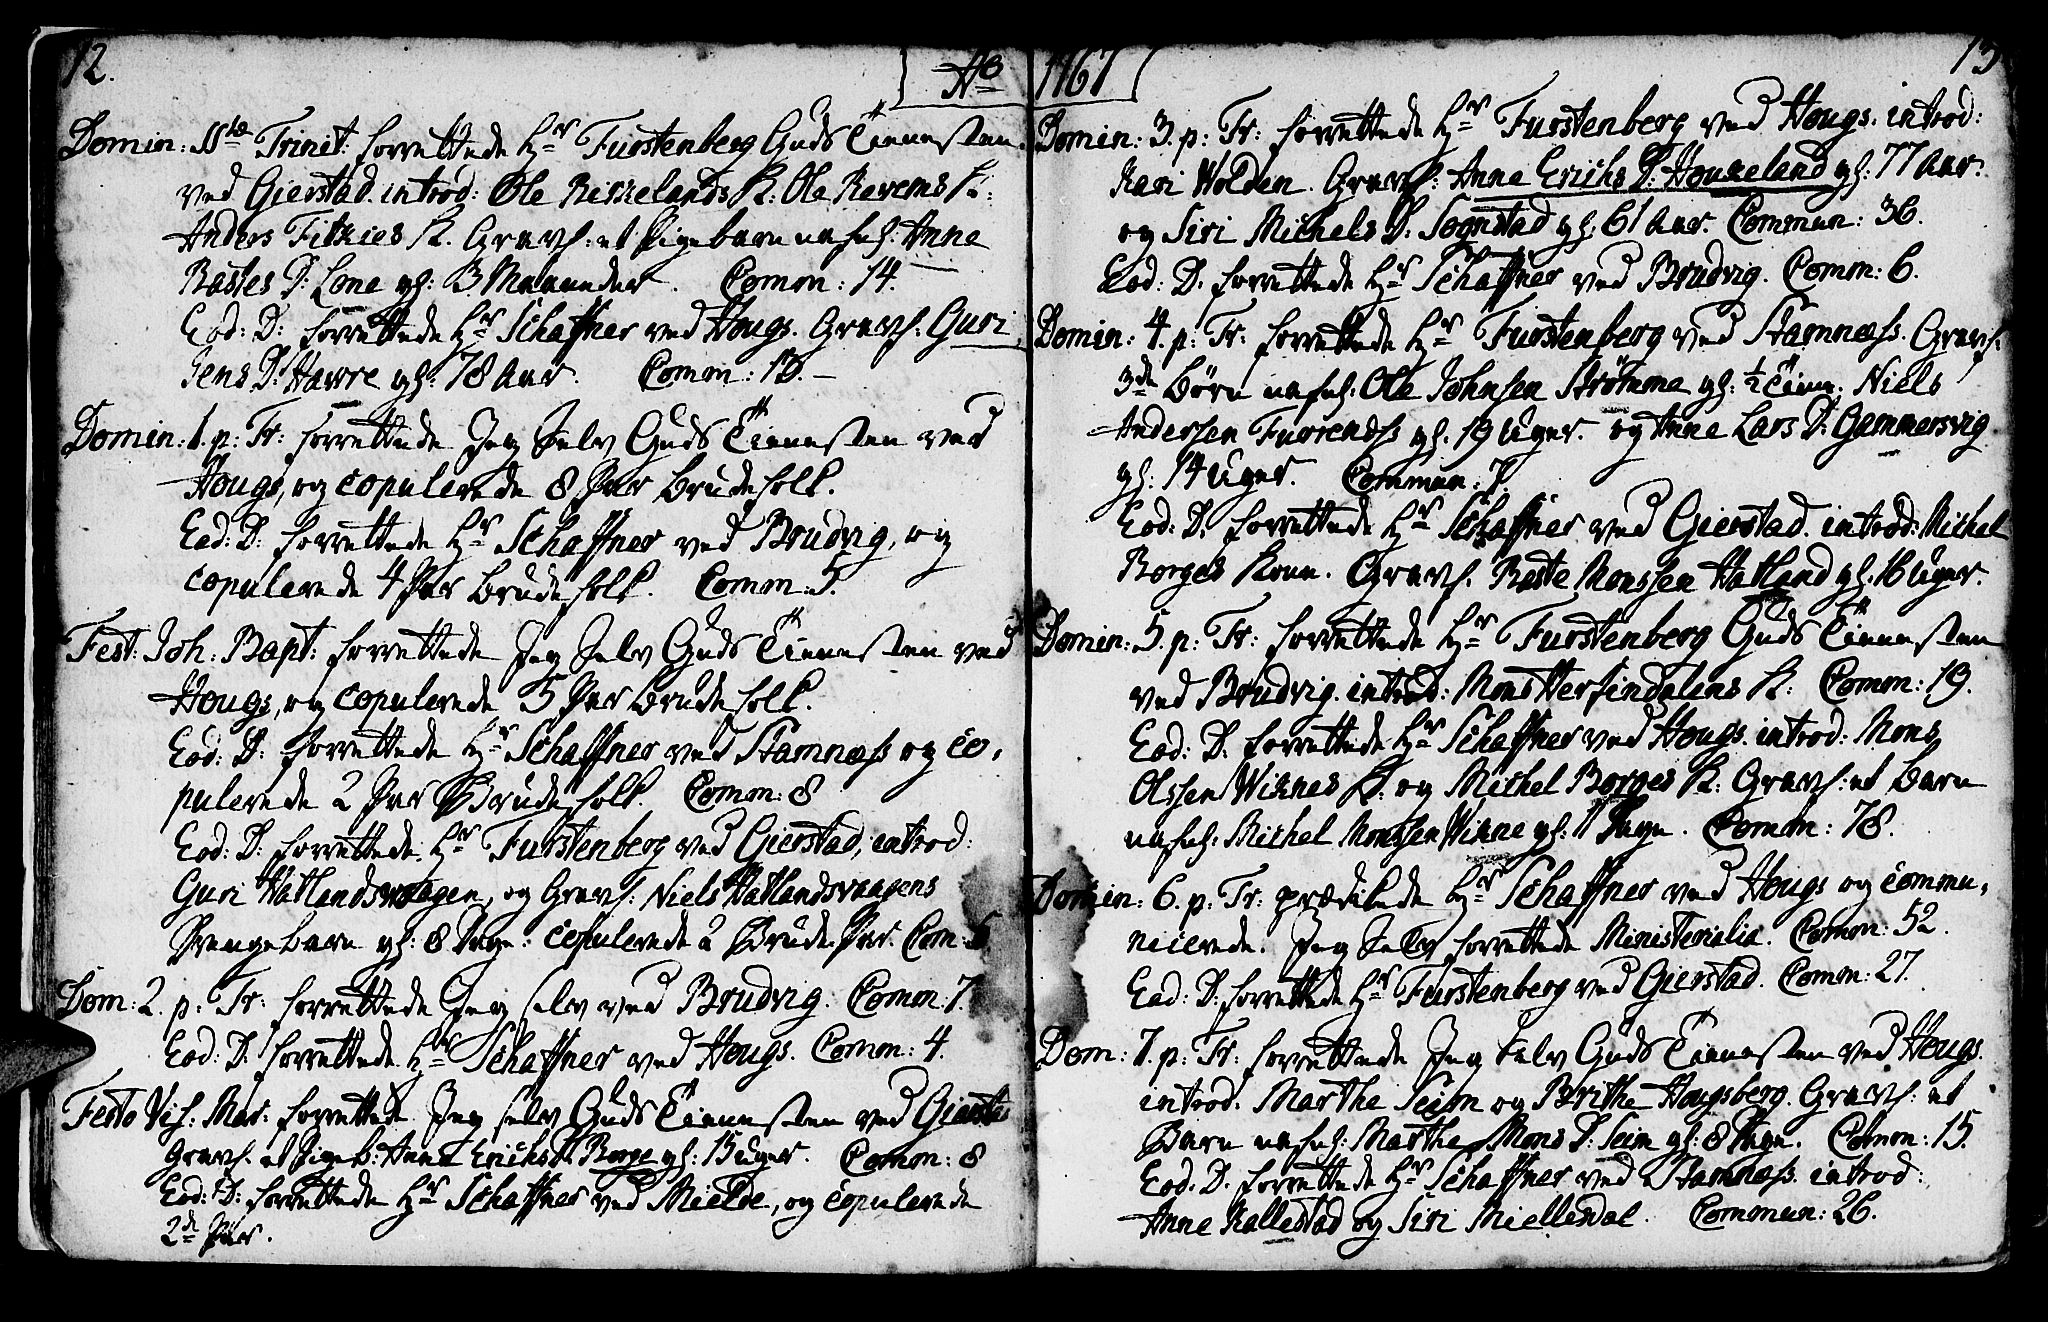 12.
Ao 1767
13
Domin: SSte Trinit: forrettede Hr Furstenberg Guds Tienesten
ved Gierstad. introd: Ole Rikkelands K: Ole Revems K:
Anders Fitkies K. Gravf: et Pigebarn nafnl. Anne
Rastes D: Lone gl: 3 Maaneder. Comon: 14.
Eod: D: forrettede Hr Schaffner ved Hougs. Gravf. Guri
Jens D: Havre gl: 78 Aar. Comm: 13.
Domin: 1. p: Tr: forrettede Jeg Selv Guds Tienesten ved
Hougs, og copulerede 8 Par Brudefolk.
Eod: D: forrettede Hr Schaffner ved Brudvig, og
copulerede 4 Par Brudefolk. Comm: 5.
Fest: Joh: Bapt: forrettede Jeg Selv Guds Tienesten ved
Hougs, og copulerede 5 Par Brudefolk.
Eod: D: forrettede Hr Schaffner ved Stamnæss og co,
pulerede 2 Par Brudefolk. Comon: 8
Eod: D: forrettede Hr Furstenberg ved Gierstad, introd:
Guri Hatlandsvaagen, og Gravf: Niels Hatlandsvaagens
Drengebarn gl: 8 Dage: copulerede 2 Brude Par. Com: 6
Dom: 2. p: Tr: forrettede Jeg selv ved Brudvig. Comon 7.
Eod: D. forrettede Hr Schaffner ved Hougs. Comon: 4.
Festo Vis: Mar: forrettede Jeg selv Guds Tienesten ved Gierst:
Gravf. et Pigeb: Anne Erichs D. Borge gl: 15 uger. Comon: 8
Eod: D: forrettede Hr Schaffner ved Mielde, og copulerede
2de Par.
Domin: 3. p: Tr: forrettede Hr Furstenberg ved Hougs. introd:
Kari Wolden. Gravf: Anna Erichs D: Houkeland gl: 77 Aar.
og Siri Michels D: Sognstad gl: 61 Aar. Commun: 36.
Eod: D. forrettede Hr Schaffner ved Brudvig. Comon: 6.
Domin: 4. p: Tr: forrettede Hr Furstenberg ved Stamnæss. Gravf:
3de Børn nafnl. Ole Johnsen Strömme gl: 1/2 Time. Niels
Anderssen Furrenæss gl. 19 Uger. og Anne Lars D: Gammersvig
gl: 14 Uger. Commun: 7.
Eod: D. forrettede Hr Schaffner ved Gierstad. introd: Michel
Borges Kone. Gravf. Raste Monssen Hatland gl. 16 Uger.
Domin: 5. p: Tr: forrettede Hr Furstenberg Guds Tienesten
ved Brudvig. introd: Mons Herfindalens K: Comon: 19.
Eod: D. forrettede Hr Schaffner ved Hougs. introd: Mons
Olssen Wiknes K: og Michel Borges K: Gravf: et Barn
nafnl: Michel Monssen Wikne gl: 1 Dage. Comm: 78.
Domin: 6. p: Tr: prædikede Hr Schaffner ved Hougs og commu,
nicerede. Jeg Selv forrettede Ministerialia. Comon: 52.
Eod: D: forrettede Hr Furstenberg ved Gierstad. Comon: 27.
Dom: 7. p: Tr: forrettede Jeg Selv Guds Tienesten ved Hougs.
introd. Marthe Seim og Brithe Hougsberg. Gravf: et
Barn nafnl: Marthe Mons D: Seim gl: 8 Dage. Comon: 15.
Eod. D. forrettede Hr Schaffner ved Stamnæss. introd:
Anne Kallestad og Siri Miellesdal. Commun: 26.